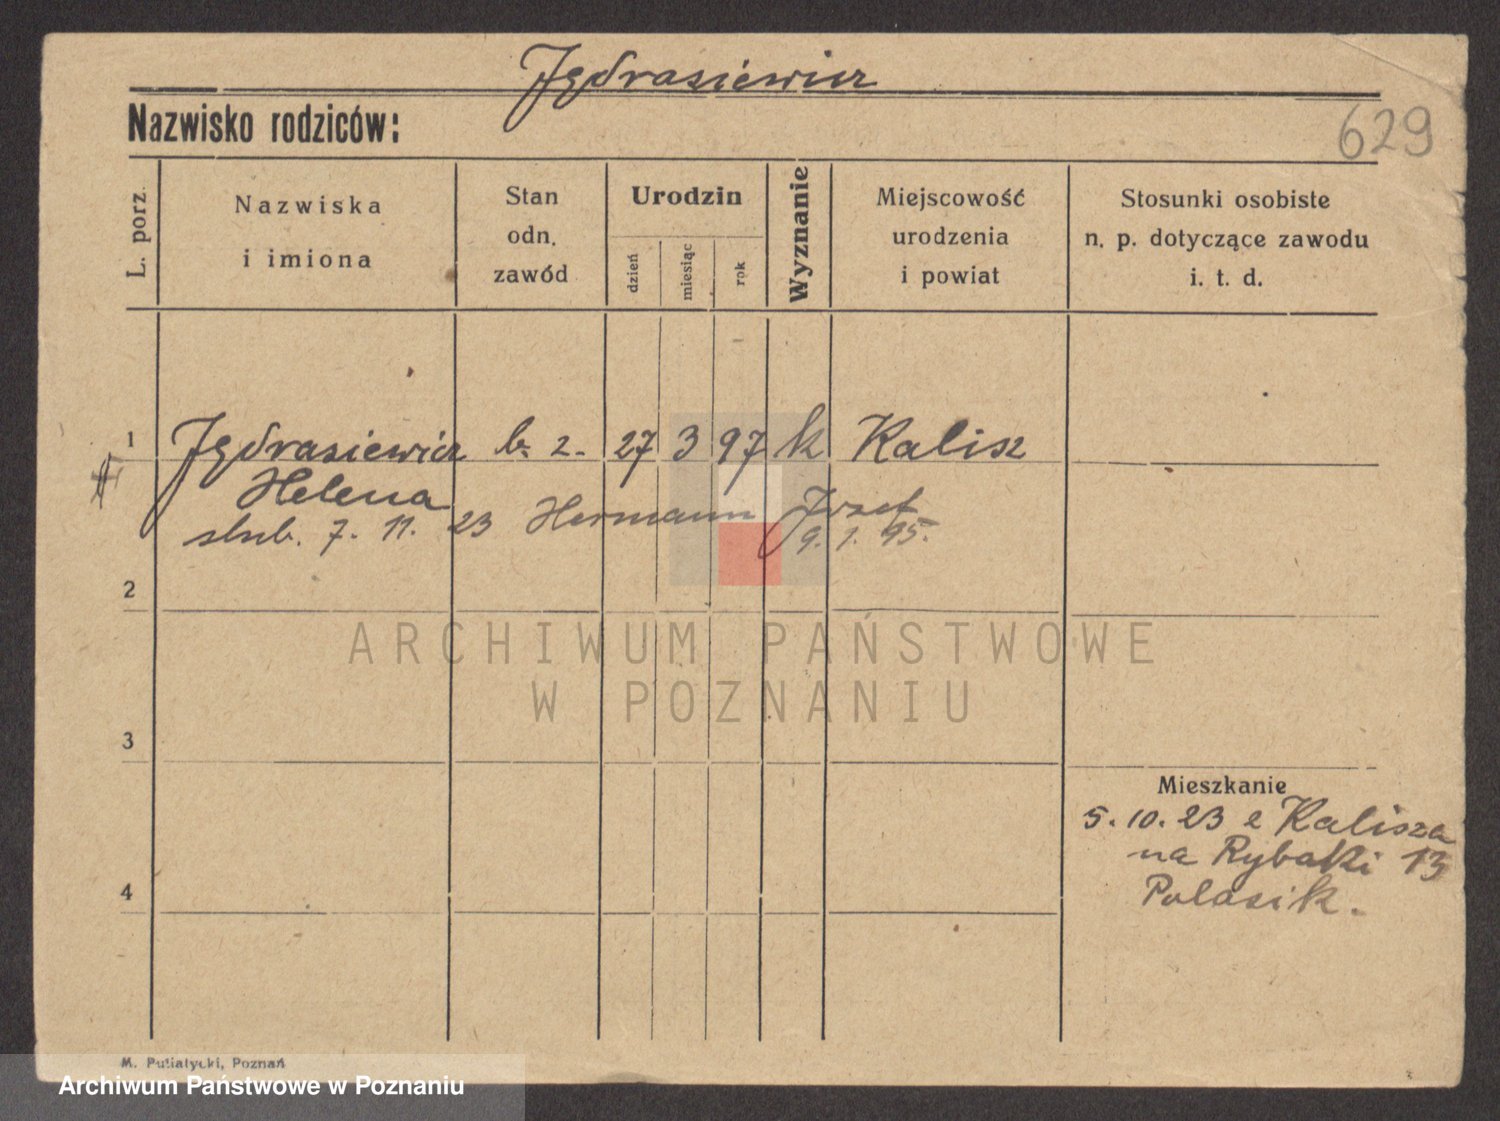 Jędrasiewicz
Nazwisko rodziców:
629
L. porz.
Nazwiska
i imiona
Stan
odn.
zawód
Urodzin
dzień
miesiąc
rok
Wyznanie
Miejscowość
urodzenia
i powiat
Stosunki osobiste
n. p. dotyczące zawodu
i. t. d.
1 Jędrasiewicz b. z. 27 3 97 k Kalisz
Helena
ślub. 7. 11. 23 Hermann Józef
9. 1. 95.
2
ARCHIWUM PAŃSTWOWE
W POZNANIU
3
Mieszkanie
5. 10. 23 z Kalisza
na Rybaki 13
Polasik.
4
M. Putiatycki, Poznań
Archiwum Państwowe w Poznaniu